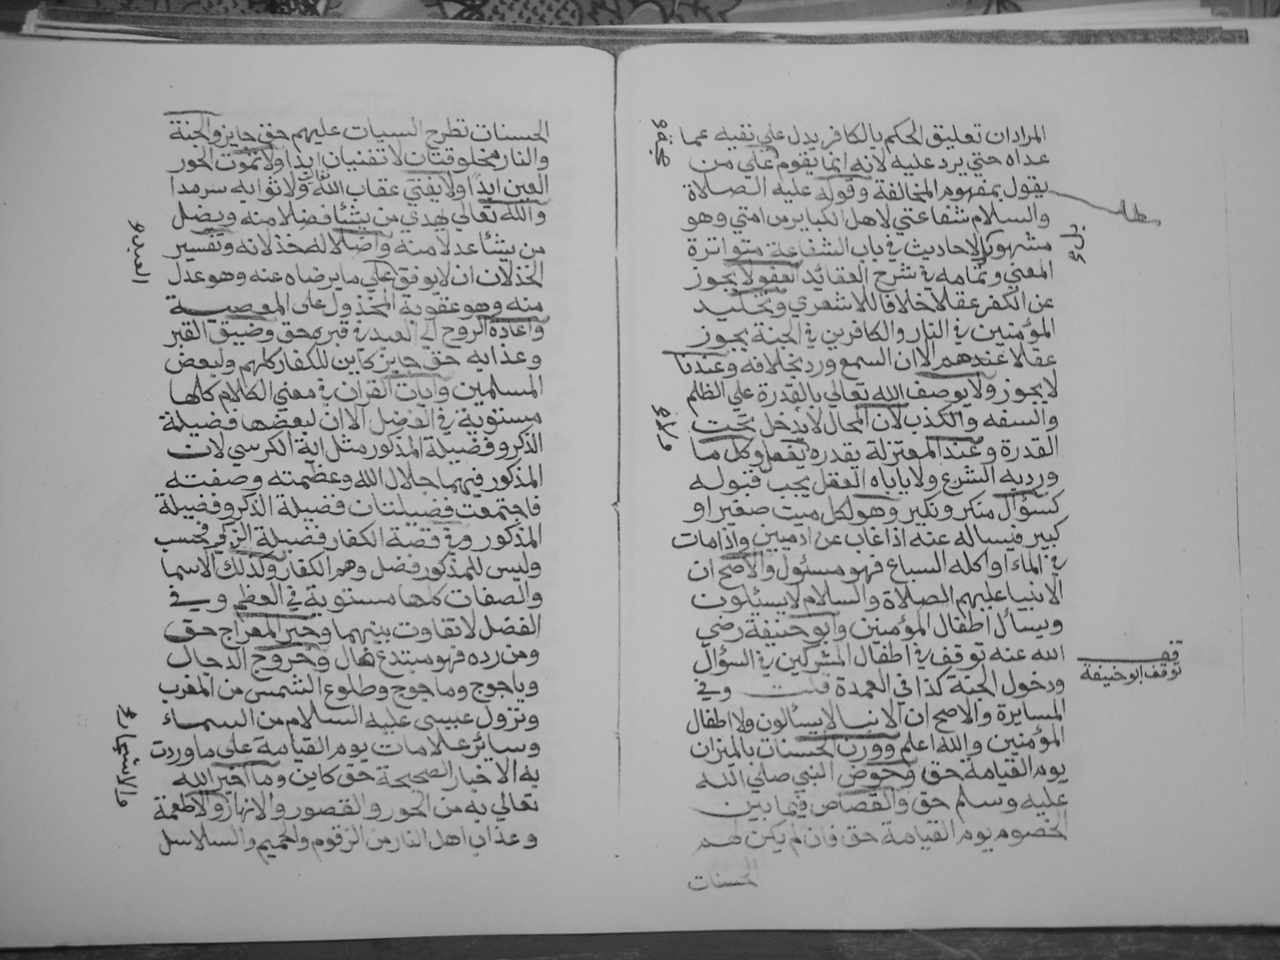 المراد ان تعليق الحكم بالكافر يدل علي نفيه عما
عداه حتي يرد عليه لانه انما يقوم علي من
يقول بمفهوم المخالفة وقوله عليه الصلاة
والسلام شفاعتي لاهل الكباير من امتي وهو
مشهور كل الاحاديث في باب الشفاعة متواترة
المعني وتمامه في شرح العقائد العفو لا يجوز
عن الكفر عقلا خلافا للاشعري وتخليد
المؤمنين في النار والكافرين في الجنة يجوز
عقلا عندهم الا ان السمع ورد بخلافه وعندنا
لا يجوز ولا يوصف الله تعالي بالقدرة علي الظلم
والسفه والكذب لان المحال لا يدخل تحت
القدرة وعند المعتزلة يقدر ولا يفعل وكل ما
ورد به الشرع ولا ياباه العقل يجب قبوله
كسؤال منكر ونكير وهو لكل ميت صغير او
كبير فيساله عنه اذا غاب عن ادميين واذا مات
في الماء او اكله السباع فهو مسئول والاصح ان
الانبيا عليهم الصلاة والسلام لا يسئلون
ويسأل اطفال المؤمنين وابو حنيفة رضي
الله عنه توقف في اطفال المشركين في السؤال
ودخول الجنة كذا في العمدة قلت وفي
المسايرة والاصح ان الانبيا لا يسئالون ولا اطفال
المؤمنين والله اعلم ووزن الحسنات بالميزان
يوم القيامة حق وحوض النبي صلي الله
عليه وسلم حق والقصاص فيما بين
الخصوم يوم القيامة حق فان لم يكن لهم
الحسنات
قف
توقف ابو حنيفة
الحسنات تطرح السيات عليهم حق جايز والجنة
والنار مخلوقتان لا تفنيان ابدا ولا تموت الحور
العين ابدا ولا يفني عقاب الله ولا ثوابه سرمدا
والله تعالي يهدي من يشئا فضلا منه ويضل
من يشئا عدلا منه واضلاله خذلانه وتفسير
الخذلان ان لا يوفق علي ما يرضاه عنه وهو عدل
منه وهو عقوبة المخذول على المعصية
واعادة الروح الي العبد في قبره حق وضيق القبر
وعذابه حق جايز كاين للكفار كلهم ولبعض
المسلمين وايات القرآن في معني الكلام كلها
مستوية في الفضل الا ان لبعضها فضيلة
الذكر وفضيلة المذكور مثل اية الكرسي لان
المذكور فيهما جلال الله وعظمته وصفته
فاجتمعت فضيلتان فضيلة الذكر وفضيلة
المذكور وفي قصة الكفار فضيلة الذكر فحسب
وليس للمذكور فضل وهم الكفار وكذلك الاسما
والصفات كلها مستوية في العظم وفي
الفضل لا تفاوت بينهما وخبر المعراج حق
ومن رده فهو مبتدع ضال وخروج الدجال
وياجوج وماجوج وطلوع الشمس من المغرب
ونزول عيسى عليه السلام من السماء
وسائر علامات يوم القيامة علي ما وردت
به الاخبار الصحيحة حق كاين وما اخبر الله
تعالي به من الحور والقصور والانهار والاطعمة
وعذاب اهل النار من الزقوم والحميم والسلاسل